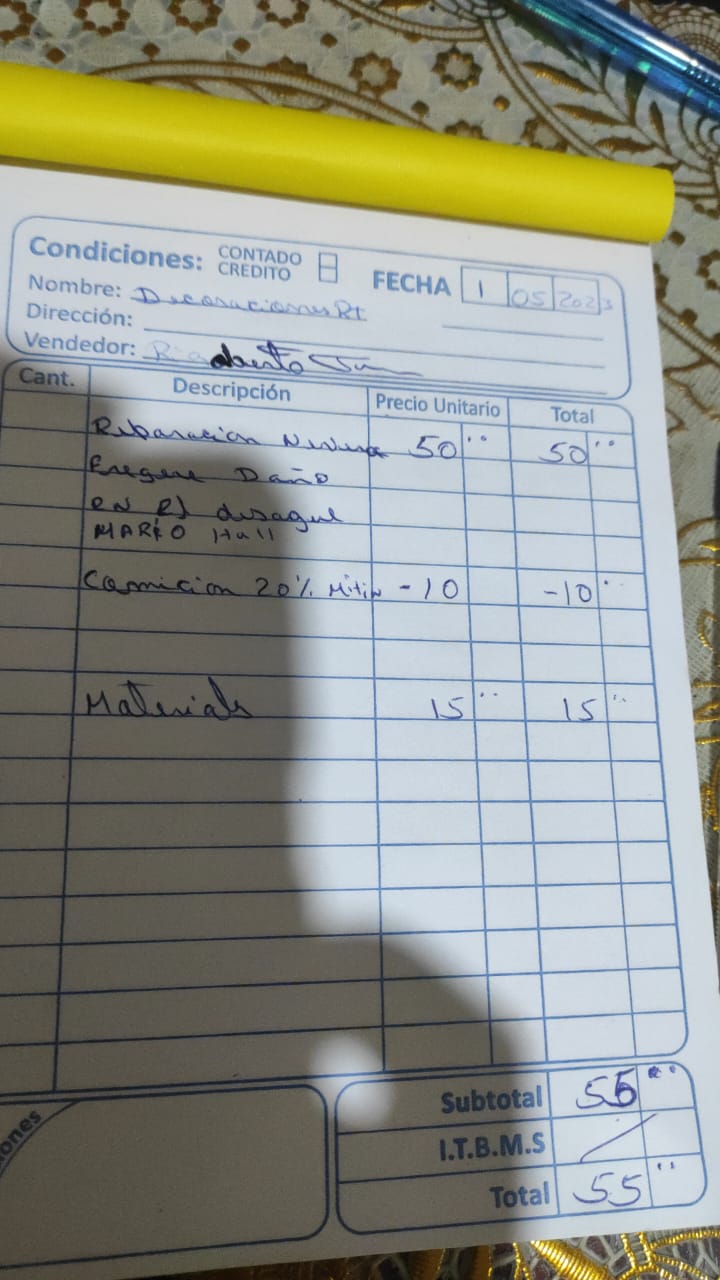 Condiciones: CONTADO
CREDITO
FECHA 1 05 2023
Nombre: Decoraciones Rt
Dirección:
Vendedor:
Cant. Descripción Precio Unitario Total
Reparacion Nevera 50 50
Daño
en el desague
MARKO Hall
Comicion 20% -10 -10
Materials 15 15
ones
Subtotal 55
I.T.B.M.S
Total 55